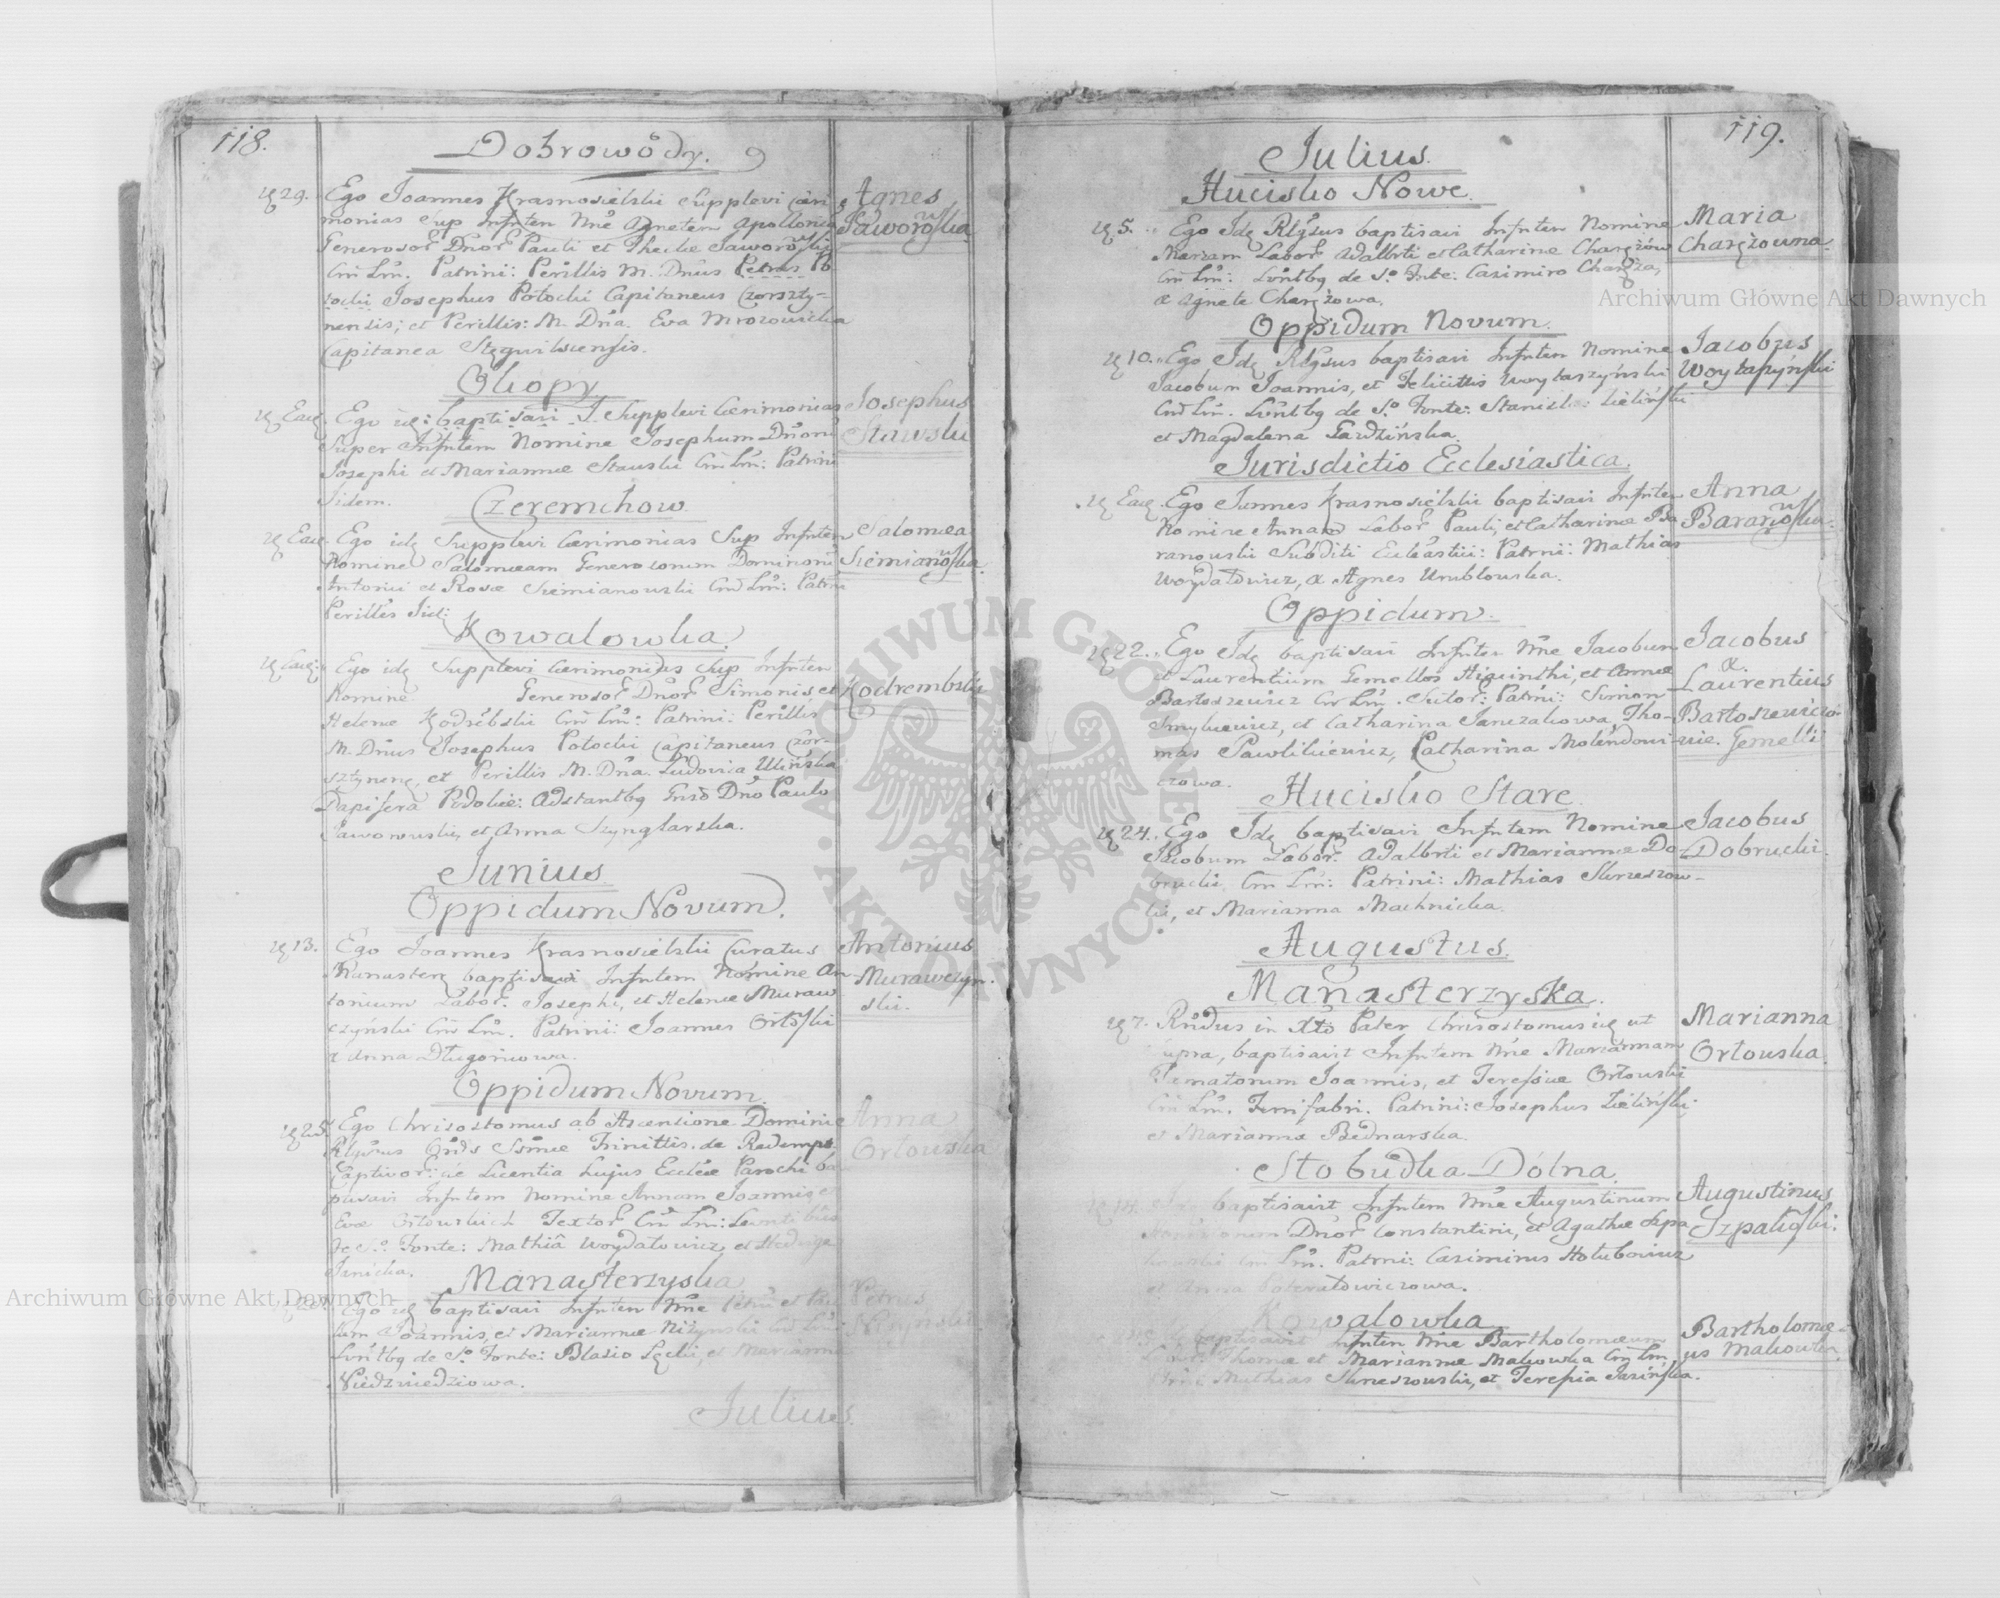 118.
Dobrowódy.
29. Ego Joannes Krasnosielski Supplevi Cæri-
monias Sup Infntem Nne Agnetem Apolloniam
Generosor Dnor Pauli et Theclæ Jaworowski
Cnr Lm. Patrini: Perillis M. Dnus Petrus Po
tocki Josephus Potocki Capitaneus Czorszty-
nensis; et Perillis: M. Dna. Eva Mrozowicka
Capitanea Stęgwilscensis.
Agnes
Jaworowska
Okopy
Eadem Ego id: baptisavi I Supplevi Cærimonias
Super Infntem Nomine Josephum Dnoru
Josephi et Mariannæ Stawski Cnr Lm: Patrini
Iidem.
Josephus
Stawski
Czeremchow
Ego ide Supplevi Cærimonias Sup Infntem
Nomine Salomeam Generosorum Dominoru
Antonii et Rosæ Siemianowski Cnr Lm: Patrini
Perilles Iid:
Salomea
Siemianowska
Kowalowka.
Ego ide Supplevi Cærimonias Sup Infntem
Nomine Generosor Dnor Simonis et
Helenæ Kodrębski Cnr Lm: Patrini: Perillis
M. Dnus Josephus Potocki Capitaneus Czor-
sztynens, et Perillis M. Dna. Ludovica Ulińska
Dapifera Podoliæ: Adstantbg Gnso Dno Paulo
Jaworowski, et Anna Szynglarska.
Kodrembski
Junius
Oppidum Novum.
13. Ego Joannes Krasnosielski Curatus
Manaster baptisavi Infntem Nomine An
tonium Labor. Josephi, et Helenæ Muraw
czyński Cnr Lm. Patrini: Joannes Orłowski
& Anna Długoniowa.
Antonius
Murawczyn-
ski.
Oppidum Novum.
25. Ego Chrisostomus ab Ascensione Domini
Rlgsus Ordis Ssmæ Trinittis de Redempt
Captivor: de Licentia hujus Ecclæ Parochi ba
ptisavi Infntem Nomine Annam Joannis et
Evæ Orłowskich Textor Cnr Lm: Levntibus
de So. Fonte: Mathia Woydałowicz, et Hedvige
Janicka.
Anna
Orłowska
Manasterzyska
Ego ide baptisavi Infntem Nne Petru et Pau
lum Joannis, et Mariannæ Niżynski Cnr Lm:
Lvntbg de So. Fonte: Blasio Lęcki, et Marianna
Niedzwiedziowa.
Petrus
Niżynski
Julius
119.
Julius.
Hucisko Nowe.
5. Ego Ide Rlgsus baptisavi Infntem Nomine
Mariam Labor Adalbrti et Catharinæ Charężów
Cnr Lm: Lvntbg de So. Fnte: Casimiro Charęża,
& Agnete Charężowa.
Maria
Charężowna.
Oppidum Novum.
10. Ego Ide Rlgsus baptisavi Infntem Nomine
Jacobum Joannis, et Felicittis Woytaszyński
Cnr Lm. Lvntbg de So. Fonte: Stanislao Zieliński
et Magdalena Gawdzińska.
Jacobus
Woytaszyński
Jurisdictio Ecclesiastica.
Ego Joannes Krasnosielski baptisavi Infntem
Nomine Annam Labor Pauli, et Catharinæ Ba
ranowski Subditi Ecclastici: Patrini: Mathias
Woydałowicz, & Agnes Wróblowska.
Anna
Baranowska.
Oppidum.
22. Ego Ide baptisavi Infntem Nne Jacobum
et Laurentium Gemellos Hiacinthi, et Annæ
Bartoszewicz Cnr Lm. Sutor: Patrini: Simon
Smykiewicz, et Catharina Janczakowa, Tho-
mas Pawlikiewicz, Catharina Molendowi-
czowa.
Jacobus
&
Laurentius
Bartoszewiczo-
wie. Gemelli
Hucisko Stare
24. Ego Ide baptisavi Infntem Nomine
Jacobum Labor. Adalbrti et Mariannæ Do-
brucki Cnr Lm: Patrini: Mathias Skrzeszow-
ski, et Marianna Machnicka.
Jacobus
Dobrucki.
Augustus.
Manasterzyska.
7. Rndus in Xto Pater Chrisostomus ide ut
supra, baptisavit Infntem Nne Mariannam
Famatorum Joannis, et Teressæ Orłowski
Cnr Lm. Ferri fabri. Patrini: Josephus Zieliński
et Marianna Bednarska.
Marianna
Orłowska.
Słobudka Dólna.
14. Ide baptisavit Infntem Nne Augustinum
Dnor Constantini, et Agathæ Szpa
kowski Cnr Lm. Patrini: Casimirus Hołubowicz
et Anna
Augustinus
Szpakowski.
Kowalowka
Ide baptisavit Infntem Nne Bartholomæum
Thomæ et Mariannæ Makowka Cnr Lm.
Mathias Skrzeszowski, et Teressia Jasińska.
Bartholomæ-
us Makowka.
Archiwum Główne Akt Dawnych
Archiwum Główne Akt Dawnych
ARCHIWUM GŁÓWNE AKT DAWNYCH